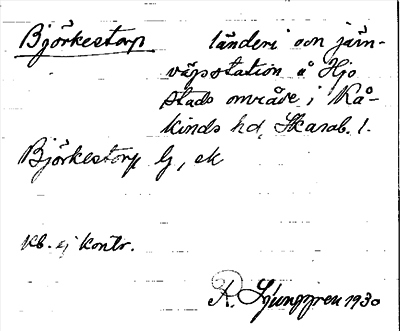 Björkestorp länderi och järn-
vägsstation å Hjo
stads område i Kå-
kinds hd, Skarab. l.
Björkestorp lj, ek
kb. ej kontr.
R. Ljunggren 1930